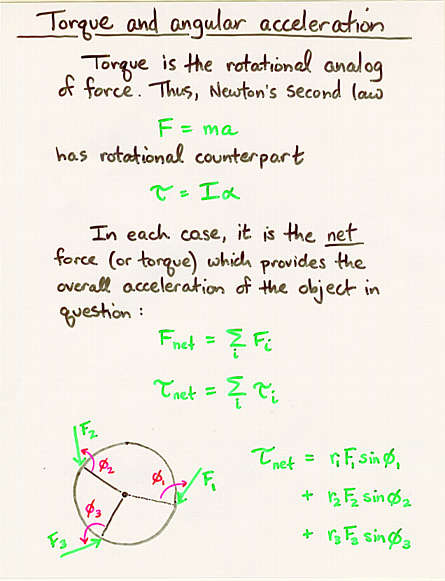 Torque and angular acceleration
Torque is the rotational analog
of force. Thus, Newton's second law
F = ma
has rotational counterpart
τ = Iα
In each case, it is the net
force (or torque) which provides the
overall acceleration of the object in
question :
Fnet = Σi Fi
τnet = Σi τi
F₂
ϕ₂
ϕ₁
F₁
ϕ₃
F₃
τnet = r₁F₁ sinϕ₁
+ r₂F₂ sinϕ₂
+ r₃F₃ sinϕ₃